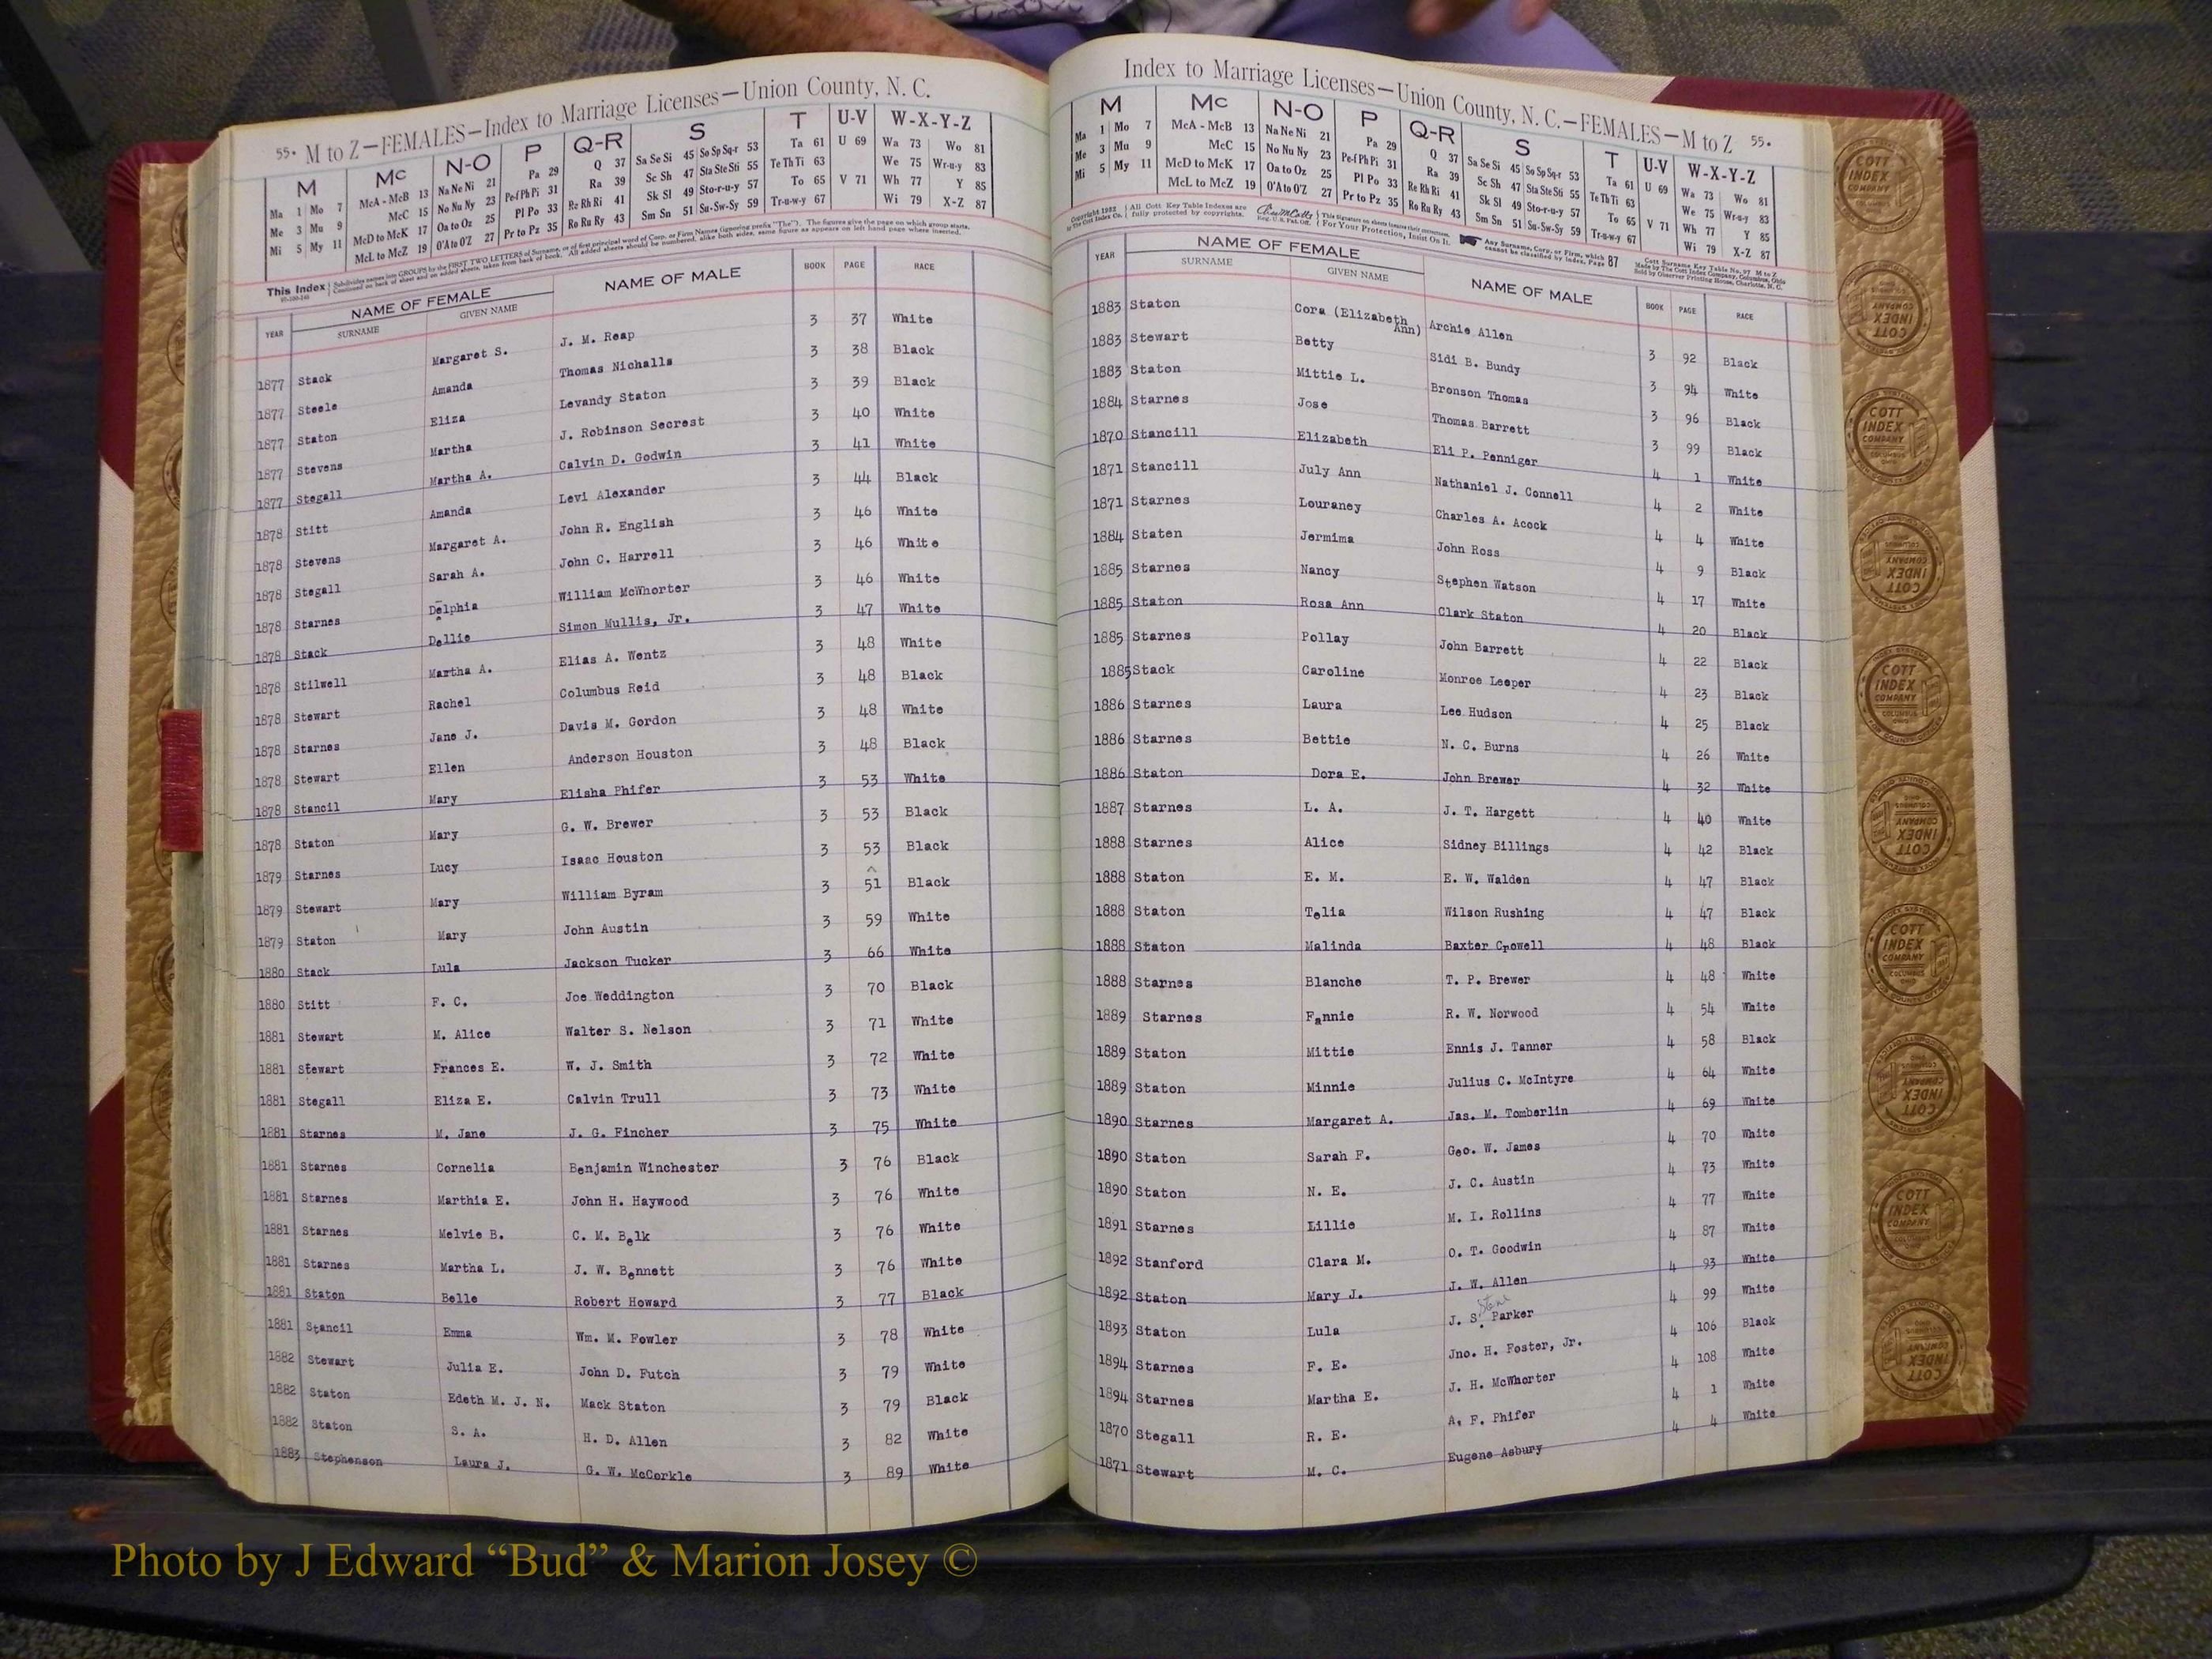 55. M to Z—FEMALES—Index to Marriage Licenses—Union County, N. C.
M Mc N-O P Q-R S T U-V W-X-Y-Z
Ma 1 Mo 7 McA - McB 13 Na Ne Ni 21 Pa 29 Q 37 Sa Se Si 45 So Sp Sq-r 53 Ta 61 U 69 Wa 73 Wo 81
Me 3 Mu 9 McC 15 No Nu Ny 23 Pe-f Ph Pi 31 Ra 39 Sc Sh 47 Sta Ste Sti 55 Te Th Ti 63 We 75 Wr-u-y 83
Mi 5 My 11 McD to McK 17 Oa to Oz 25 Pl Po 33 Re Rh Ri 41 Sk Sl 49 Sto-r-u-y 57 To 65 V 71 Wh 77 Y 85
McL to McZ 19 O'A to O'Z 27 Pr to Pz 35 Ro Ru Ry 43 Sm Sn 51 Su-Sw-Sy 59 Tr-u-w-y 67 Wi 79 X-Z 87
This Index Subdivides names into GROUPS by the FIRST TWO LETTERS of Surname, or of first principal word of Corp. or Firm Names (ignoring prefix "The"). The figures give the page on which group starts.
Continued on back of sheet and on added sheets, taken from back of book. All added sheets should be numbered, alike both sides, same figure as appears on left hand page where inserted.
YEAR NAME OF FEMALE NAME OF MALE BOOK PAGE RACE
SURNAME GIVEN NAME
1877 Stack Margaret S. J. M. Reap 3 37 White
1877 Steele Amanda Thomas Nichalls 3 38 Black
1877 Staton Eliza Levandy Staton 3 39 Black
1877 Stevens Martha J. Robinson Secrest 3 40 White
1877 Stegall Martha A. Calvin D. Godwin 3 41 White
1878 Stitt Amanda Levi Alexander 3 44 Black
1878 Stevens Margaret A. John R. English 3 46 White
1878 Stegall Sarah A. John C. Harrell 3 46 White
1878 Starnes Delphia William McWhorter 3 46 White
1878 Stack Dellie Simon Mullis, Jr. 3 47 White
1878 Stilwell Martha A. Elias A. Wentz 3 48 White
1878 Stewart Rachel Columbus Reid 3 48 Black
1878 Starnes Jane J. Davis M. Gordon 3 48 White
1878 Stewart Ellen Anderson Houston 3 48 Black
1878 Stancil Mary Elisha Phifer 3 53 White
1878 Staton Mary G. W. Brewer 3 53 Black
1879 Starnes Lucy Isaac Houston 3 53 Black
1879 Stewart Mary William Byram 3 51 Black
1879 Staton Mary John Austin 3 59 White
1880 Stack Lula Jackson Tucker 3 66 White
1880 Stitt F. C. Joe Weddington 3 70 Black
1881 Stewart M. Alice Walter S. Nelson 3 71 White
1881 Stewart Frances E. W. J. Smith 3 72 White
1881 Stegall Eliza E. Calvin Trull 3 73 White
1881 Starnes M. Jane J. G. Fincher 3 75 White
1881 Starnes Cornelia Benjamin Winchester 3 76 Black
1881 Starnes Marthia E. John H. Haywood 3 76 White
1881 Starnes Melvie B. C. M. Belk 3 76 White
1881 Starnes Martha L. J. W. Bennett 3 76 White
1881 Staton Belle Robert Howard 3 77 Black
1881 Stancil Emma Wm. M. Fowler 3 78 White
1882 Stewart Julia E. John D. Futch 3 79 White
1882 Staton Edeth M. J. N. Mack Staton 3 79 Black
1882 Staton S. A. H. D. Allen 3 82 White
1883 Stephenson Laura J. G. W. McCorkle 3 89 White
Index to Marriage Licenses—Union County, N. C.—FEMALES—M to Z 55.
M Mc N-O P Q-R S T U-V W-X-Y-Z
Ma 1 Mo 7 McA - McB 13 Na Ne Ni 21 Pa 29 Q 37 Sa Se Si 45 So Sp Sq-r 53 Ta 61 U 69 Wa 73 Wo 81
Me 3 Mu 9 McC 15 No Nu Ny 23 Pe-f Ph Pi 31 Ra 39 Sc Sh 47 Sta Ste Sti 55 Te Th Ti 63 We 75 Wr-u-y 83
Mi 5 My 11 McD to McK 17 Oa to Oz 25 Pl Po 33 Re Rh Ri 41 Sk Sl 49 Sto-r-u-y 57 To 65 V 71 Wh 77 Y 85
McL to McZ 19 O'A to O'Z 27 Pr to Pz 35 Ro Ru Ry 43 Sm Sn 51 Su-Sw-Sy 59 Tr-u-w-y 67 Wi 79 X-Z 87
All Cott Key Table Indexes are fully protected by copyrights. For Your Protection, Insist On It. Any Surname, Corp. or Firm, which cannot be classified by index, Page 87
YEAR NAME OF FEMALE NAME OF MALE BOOK PAGE RACE
SURNAME GIVEN NAME
1883 Staton Cora (Elizabeth Ann) Archie Allen 3 92 Black
1883 Stewart Betty Sidi B. Bundy 3 94 White
1883 Staton Mittie L. Bronson Thomas 3 96 Black
1884 Starnes Jose Thomas Barrett 3 99 Black
1870 Stancill Elizabeth Eli P. Penniger 4 1 White
1871 Stancill July Ann Nathaniel J. Connell 4 2 White
1871 Starnes Louraney Charles A. Acock 4 4 White
1884 Staten Jermima John Ross 4 9 Black
1885 Starnes Nancy Stephen Watson 4 17 White
1885 Staton Rosa Ann Clark Staton 4 20 Black
1885 Starnes Pollay John Barrett 4 22 Black
1885 Stack Caroline Monroe Leeper 4 23 Black
1886 Starnes Laura Lee Hudson 4 25 Black
1886 Starnes Bettie N. C. Burns 4 26 White
1886 Staton Dora E. John Brewer 4 32 White
1887 Starnes L. A. J. T. Hargett 4 40 White
1888 Starnes Alice Sidney Billings 4 42 Black
1888 Staton E. M. E. W. Walden 4 47 Black
1888 Staton Telia Wilson Rushing 4 47 Black
1888 Staton Malinda Baxter Crowell 4 48 Black
1888 Starnes Blanche T. P. Brewer 4 48 White
1889 Starnes Fannie R. W. Norwood 4 54 White
1889 Staton Mittie Ennis J. Tanner 4 58 Black
1889 Staton Minnie Julius C. McIntyre 4 64 White
1890 Starnes Margaret A. Jas. M. Tomberlin 4 69 White
1890 Staton Sarah F. Geo. W. James 4 70 White
1890 Staton N. E. J. C. Austin 4 73 White
1891 Starnes Lillie M. I. Rollins 4 77 White
1892 Stanford Clara M. O. T. Goodwin 4 87 White
1892 Staton Mary J. J. W. Allen 4 93 White
1893 Staton Lula J. S. Parker 4 99 White
1894 Starnes F. E. Jno. H. Foster, Jr. 4 106 Black
1894 Starnes Martha E. J. H. McWhorter 4 108 White
1870 Stegall R. E. A. F. Phifer 4 1 White
1871 Stewart M. C. Eugene Asbury 4 4 White
COTT INDEX COMPANY
Photo by J Edward “Bud” & Marion Josey ©